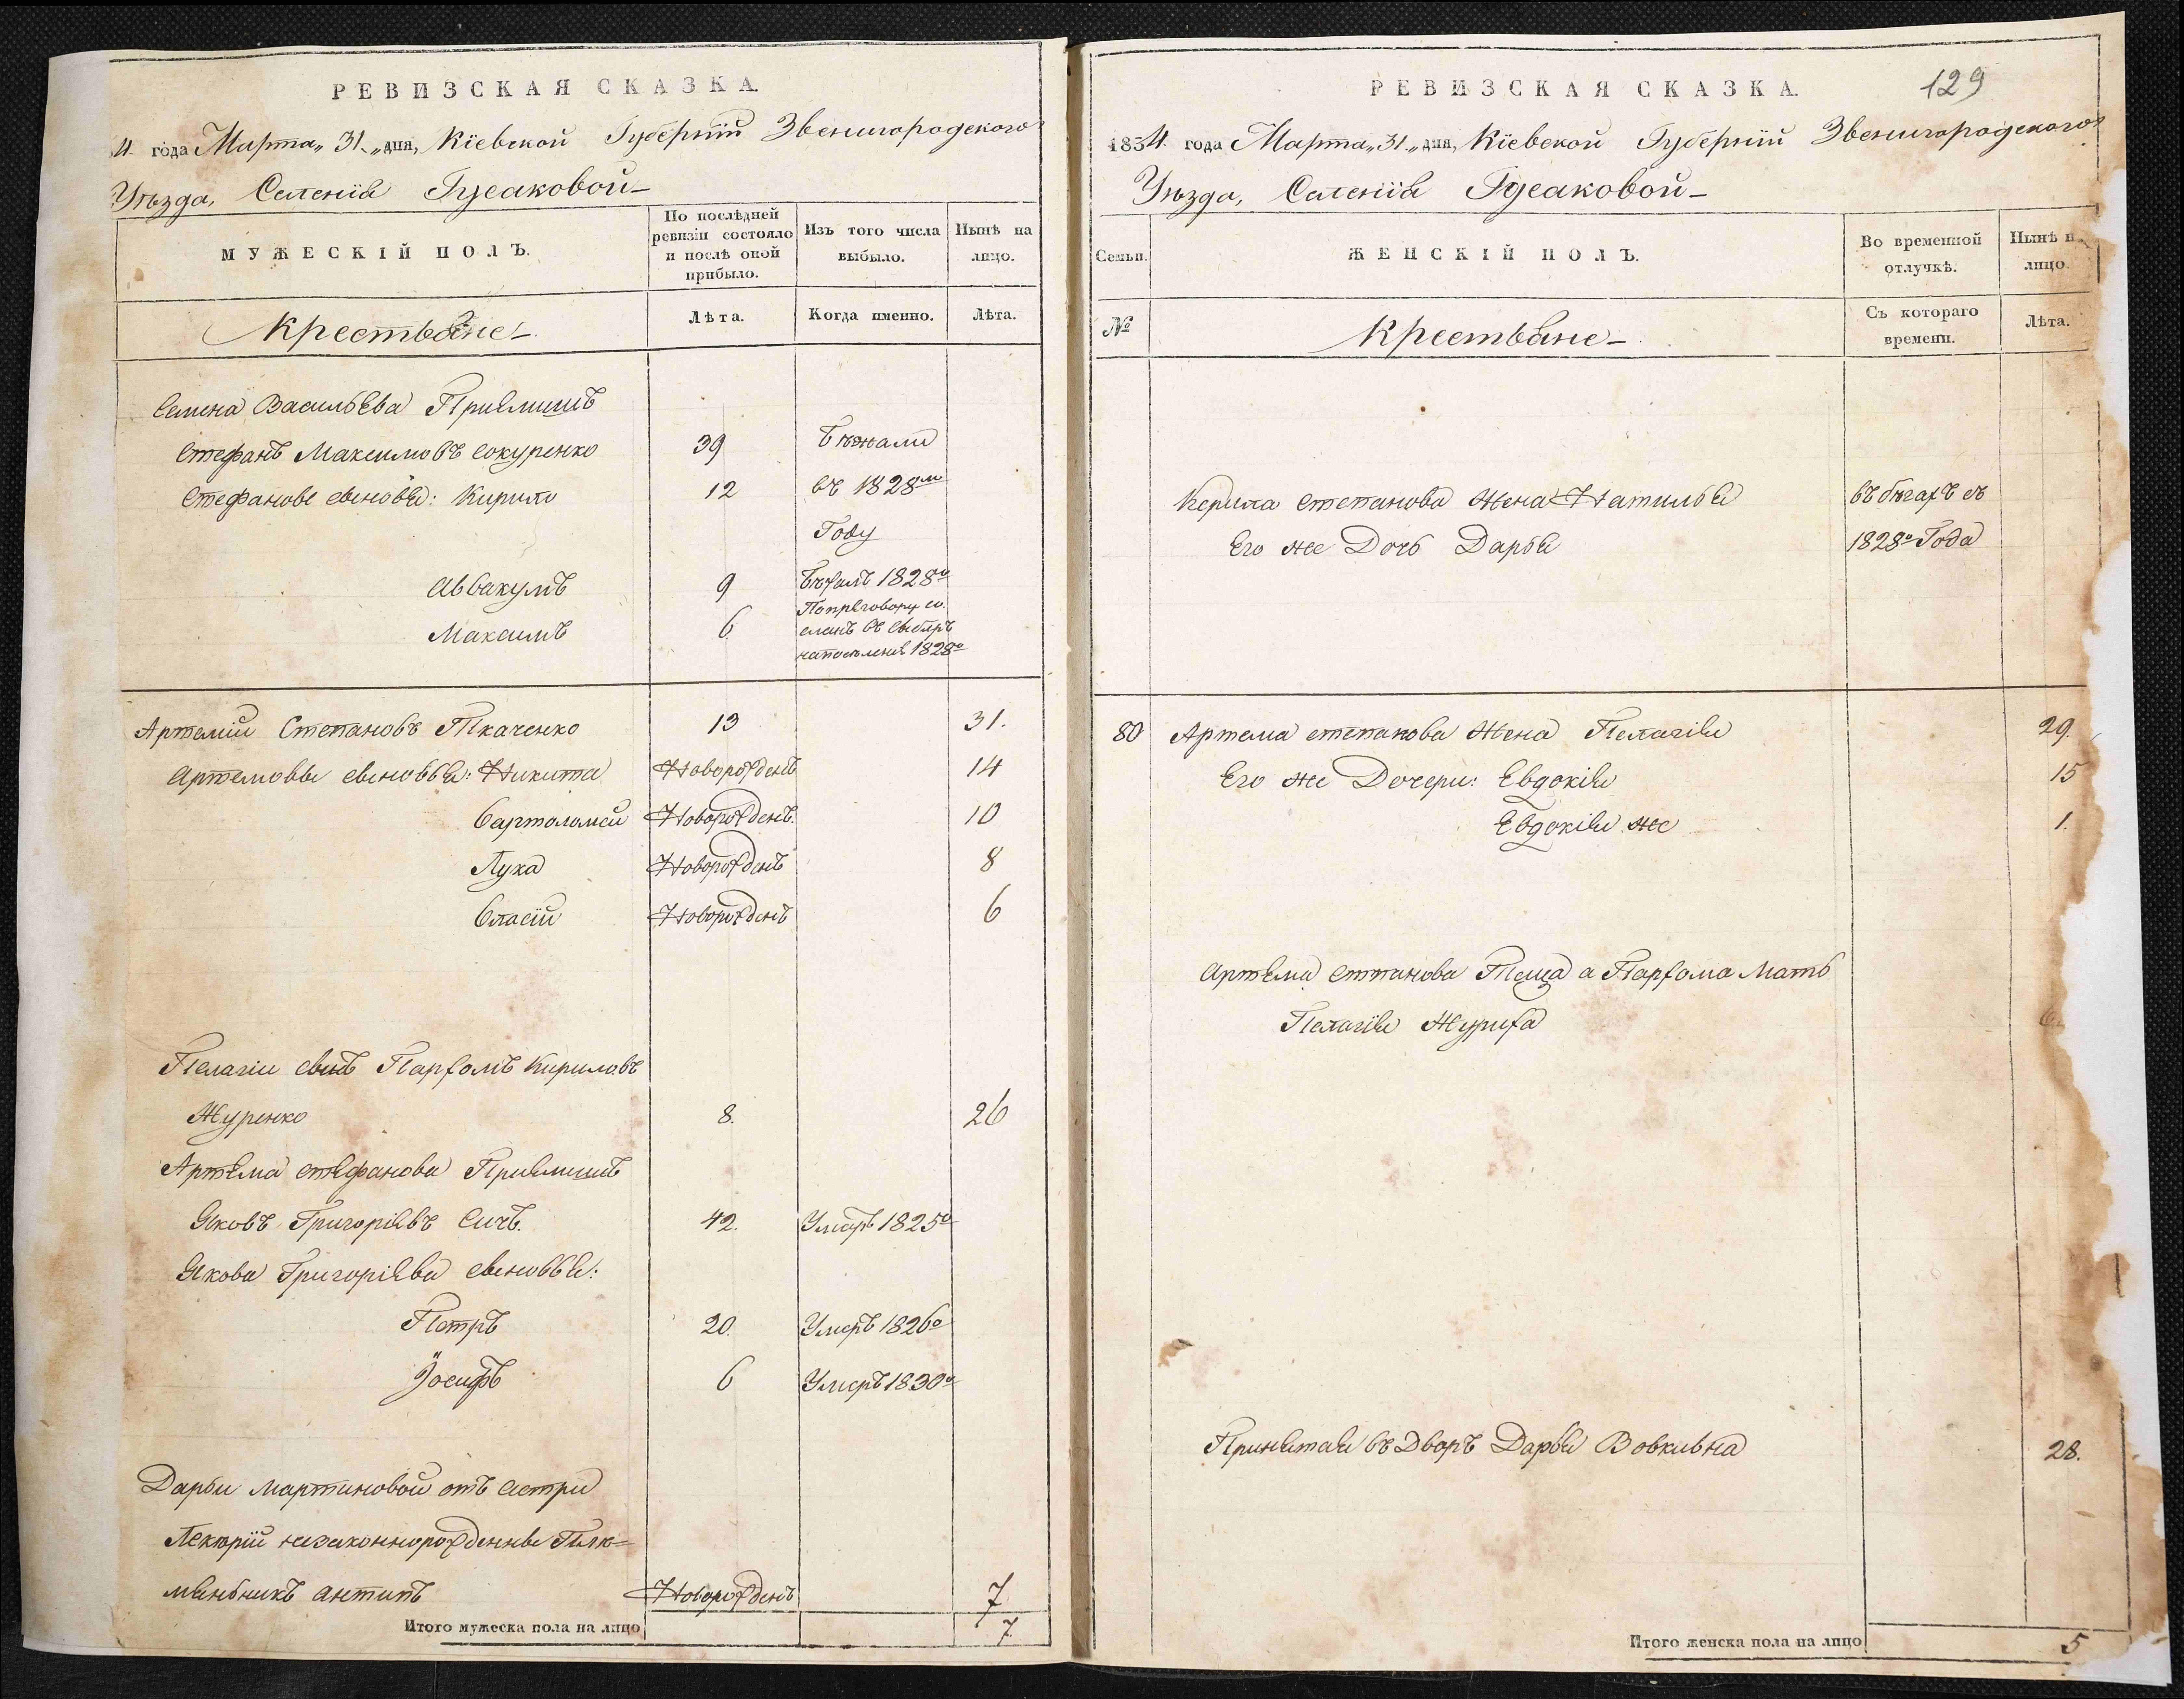 РЕВИЗСКАЯ СКАЗКА.
4. года Марта „31„ дня, Кіевской Губерніи Звенигородского
Уѣзда, Селенія Гусаковой
МУЖЕСКІЙ ПОЛЪ.
По послѣдней ревизіи состояло и послѣ оной прибыло.
Изъ того числа выбыло.
Нынѣ на лицо.
Крестьяне
Лѣта.
Когда именно.
Лѣта.
Семена Васильева Приемишъ
Стефанъ Максимовъ Сокуренко 39 Бѣжали
Стефанове сыновья: Кирило 12 въ 1828м
Году
Аввакумъ 9 Бѣжалъ 1828о
По приговору со
Максимъ 6 сланъ въ Сибирь
на поселеніе 1828о
Артемій Степановъ Ткаченко 13 31.
Артемовы сыновья: Никита Новорожденъ 14
Вартоломей Новорожденъ 10
Лука Новорожденъ 8
Власій Новорожденъ 6
Пелагіи сынъ Парфомъ Кириловъ
Журенко 8. 26
Артема Стефанова Приемишъ
Яковъ Григоріевъ Сичъ. 42. Умеръ 1825о
Якова Григоріева сыновья:
Петръ 20. Умеръ 1826о
Іосифъ 6 Умеръ 1830о
Дарьи Мартиновой отъ сестри
незаконнорожденны Плю=
мянникъ Антипъ Новорожденъ 7
Итого мужеска пола на лицо 7
РЕВИЗСКАЯ СКАЗКА.
129
1834. года Марта „31„ дня, Кіевской Губерніи Звенигородского
Уѣзда, Селенія Гусаковой
Семьи.
ЖЕНСКІЙ ПОЛЪ.
Во временной отлучкѣ.
Нынѣ н
лицо.
№
Крестьяне
Съ котораго времени.
Лѣта.
Керила Степанова Жена Наталья въ бѣгахъ съ
Его же Дочь Дарья 1828о Года
80 Артема Степанова Жена Пелагія 29.
Его же Дочери: Евдокія 15
Евдокія же 1.
Артема Степанова Теща а Парфома Мать
Пелагія Журиха
Принятая въ Дворъ Дарья Вовкивна 28.
Итого женска пола на лицо 5